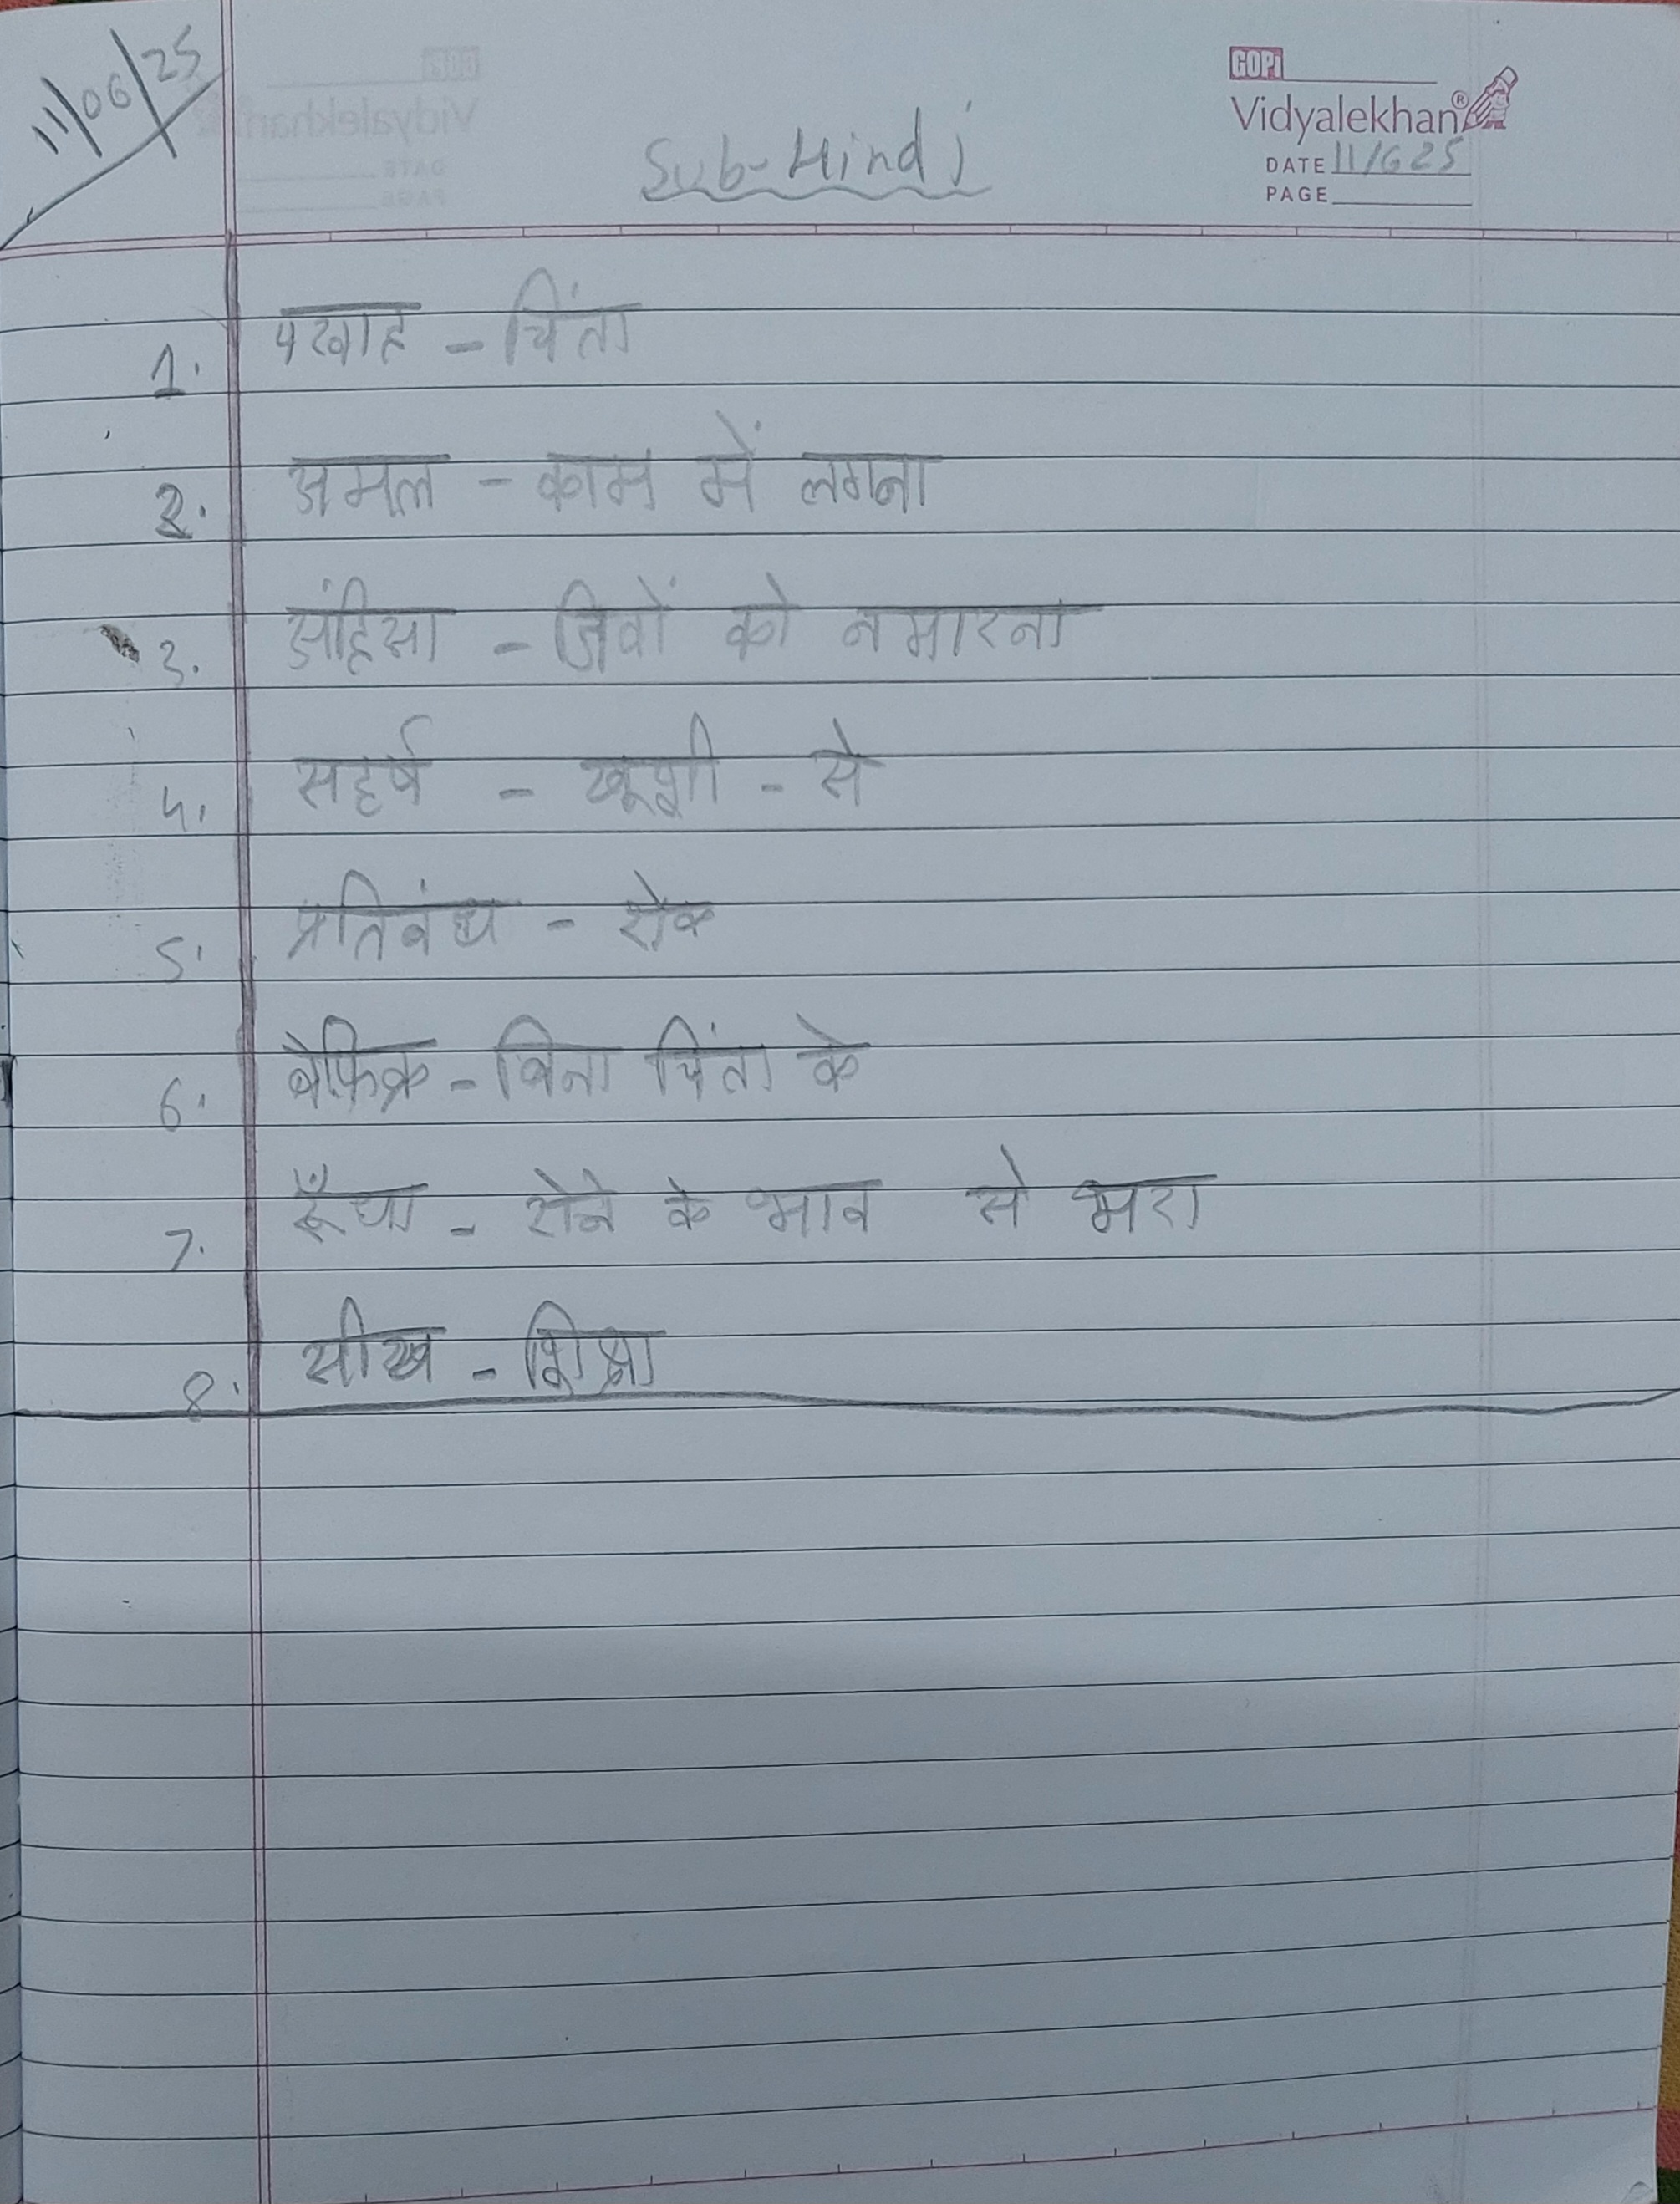 11/06/25
GOPI
Vidyalekhan®
Sub-Hindi
DATE 11/6 25
PAGE
1. परवाह - चिंता
2. अमल - काम में लगना
3. अंहिसा - जिवों को न मारना
4. सहर्ष - खूशी - से
5. प्रतिबंध - रोक
6. बेफ़िक्र - बिना चिंता के
7. रूँधा - रोने के भाव से भरा
8. सीख - शिक्षा